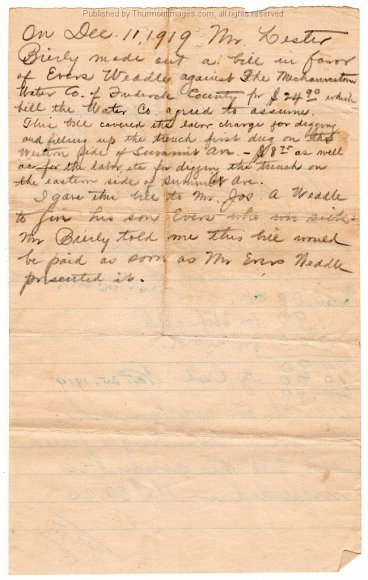 Published on Thurmontimages.com, all rights reserved
On Dec. 11, 1919 Mr. Lester
Bierly made out a bill in favor
of Evers Weddle against The Mechanicstown
Water Co. of Frederick County for $24.90 which
bill the Water Co. agreed to assume.
This bill covered the labor charge for digging
and filling up the trench first dug on the
Western side of Summit Ave - $8.25 as well
as for the labor etc for digging the trench on
the eastern side of Summit Ave.
I gave this bill to Mr. Jos A Weddle
to his son Evers who was sick.
Mr Bierly told me this bill would
be paid as soon as Mr Evers Weddle
presented it.